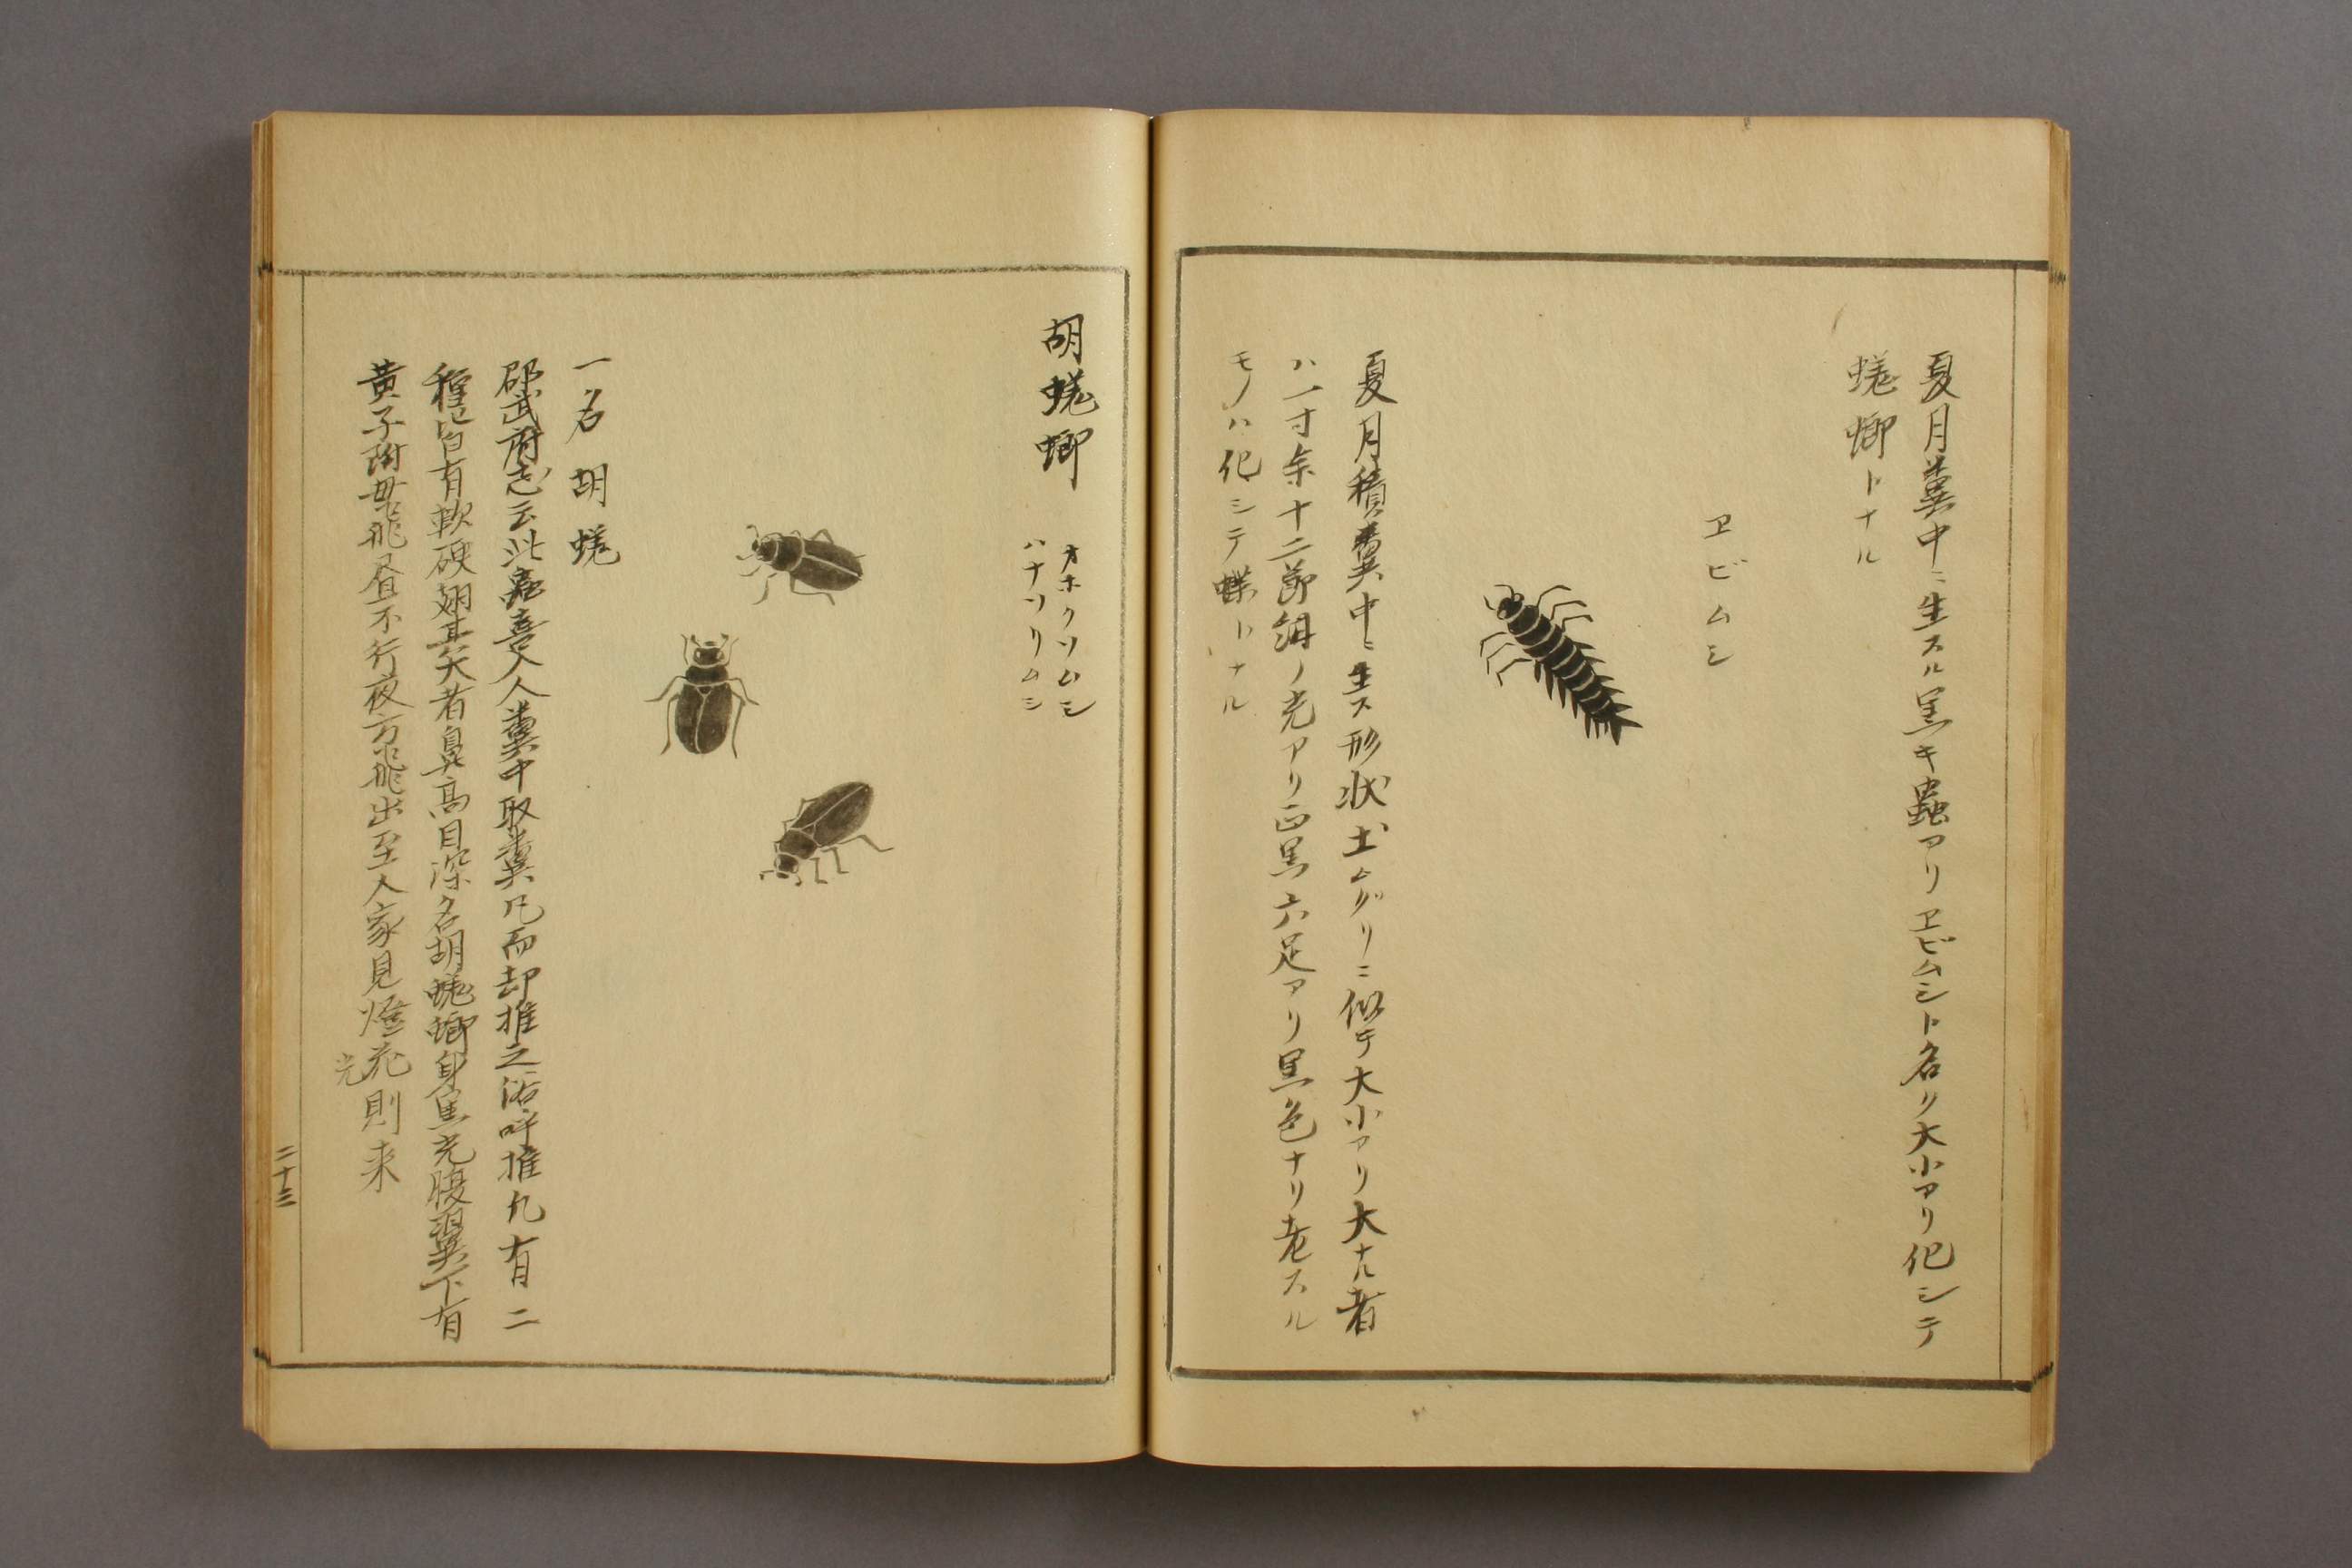 夏月糞中ニ生スル黒キ蟲アリヱビムシト名ク大小アリ化シテ
蜣蜋トナル
ヱビムシ
夏月積糞中ニ生ス形状土ムグリニ似テ大小アリ大ナル者
ハ一寸余十二節絹ノ光アリ正黒六足アリ黒色ナリ老スル
モノハ化シテ蝶トナル
胡蜣蜋
オホクソムシ
ハナツリムシ
一名胡蜣
邵武府志云此蟲喜入人糞中取糞凡而却推之俗呼推凡有二
種皆有軟硬翅其大者鼻高目深名胡蜣蜋身黒光腹翼下有
黄子附母飛昼不行夜方飛出至人家見燈花則来
光
二十三